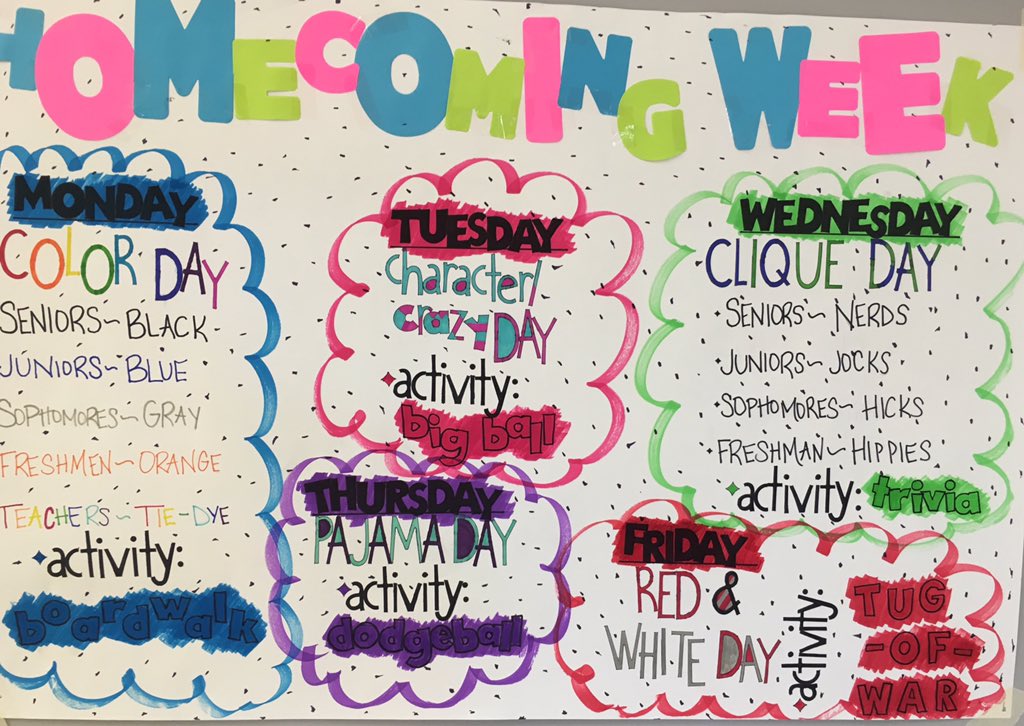 HOMECOMING WEEK
MONDAY
COLOR DAY
SENIORS~BLACK
JUNIORS~BLUE
SOPHOMORES~GRAY
FRESHMEN~ORANGE
TEACHERS~TIE-DYE
activity:
boardwalk
TUESDAY
character/
crazy DAY
activity:
big ball
WEDNESDAY
CLIQUE DAY
SENIORS~ NERDS
JUNIORS~ JOCKS
SOPHOMORES~ HICKS
FRESHMAN~HIPPIES
activity: trivia
THURSDAY
PAJAMA DAY
activity:
dodgeball
FRIDAY
RED &
WHITE DAY
activity:
TUG
-OF-
WAR